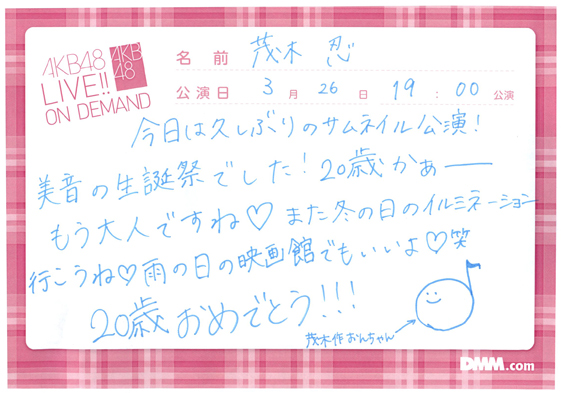 AKB48
LIVE!!
ON DEMAND
AKB
48
名前 茂木 忍
公演日 3月26日 19:00公演
今日は久しぶりのサムネイル公演!
美音の生誕祭でした!20歳かぁー
もう大人ですね♡また冬の日のイルミネーション
行こうね♡雨の日の映画館でもいいよ♡笑
20歳おめでとう!!!
茂木作おんちゃん
DMM.com